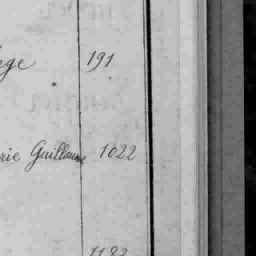 ege 191
rie Guillaume 1022
1182